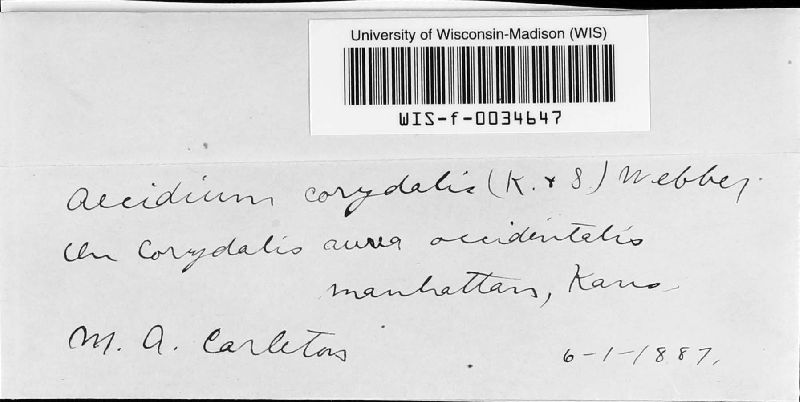 University of Wisconsin-Madison (WIS)
WIS-f-0034647
Aecidium corydalis (K. & S.) Webber.
On Corydalis aurea occidentalis
Manhattan, Kans.
M. A. Carleton
6-1-1887.